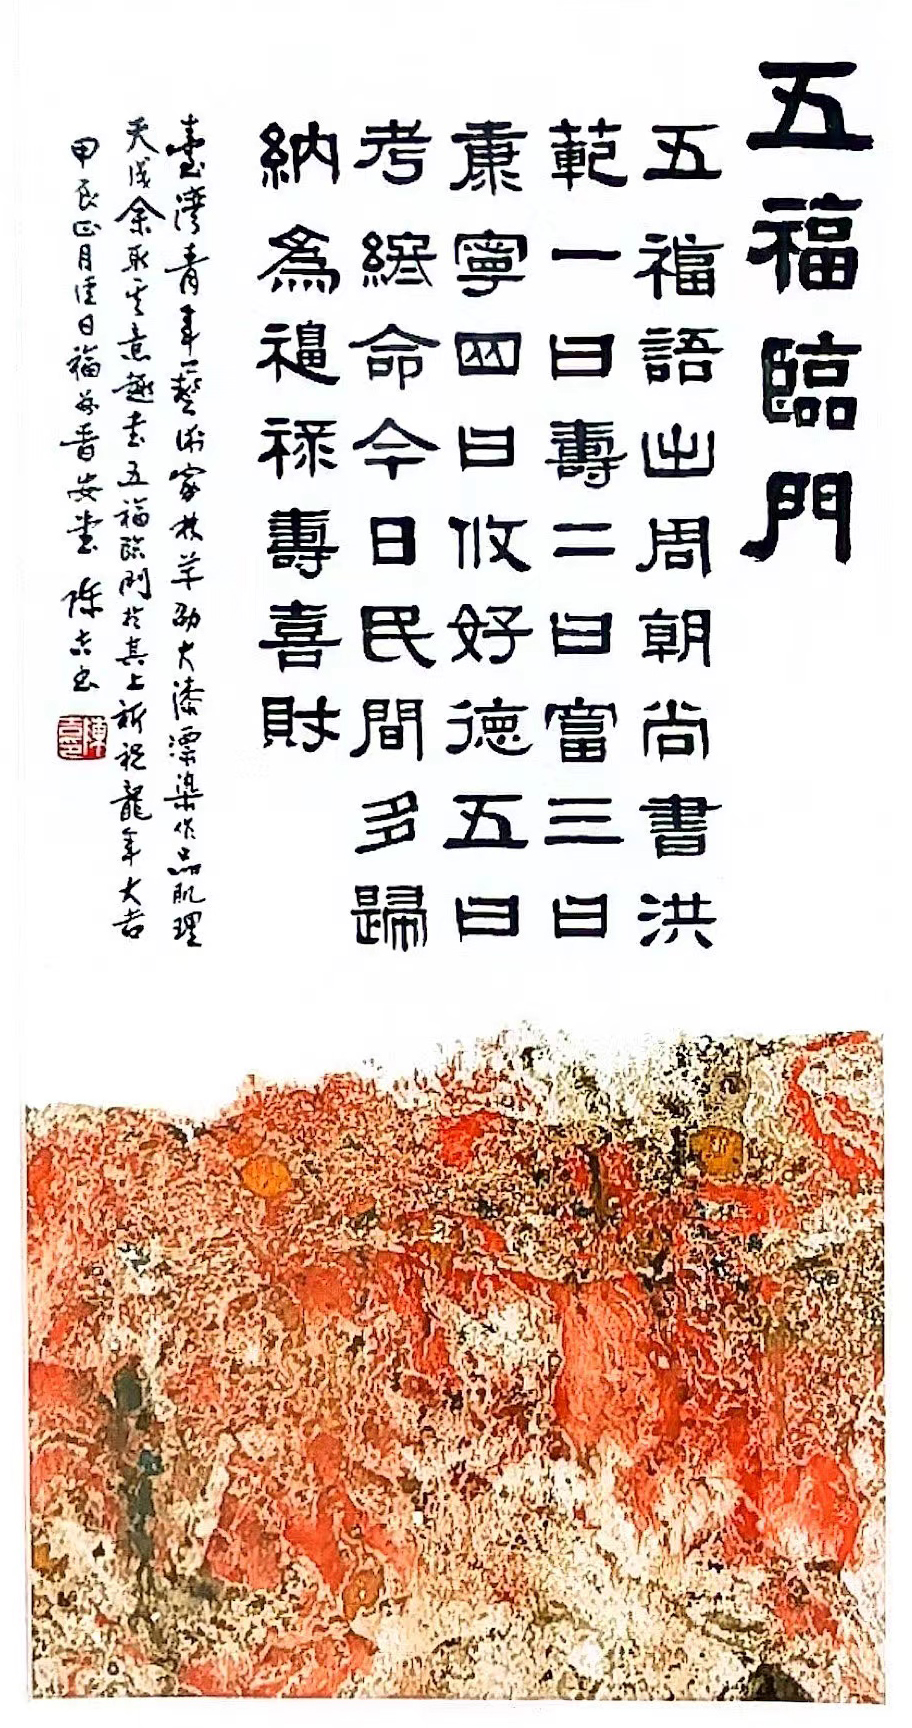 五福臨門
五福語出周朝尚書洪
範一曰壽二曰富三曰
康寧四曰攸好德五曰
考終命今日民間多歸
納為福祿壽喜財
臺灣青年藝術家林芊劭大漆漂染作品肌理
天成余取其意趣書五福臨門於其上祈祝龍年大吉
甲辰正月佳日福州晋安書 陳吉書
陳吉印